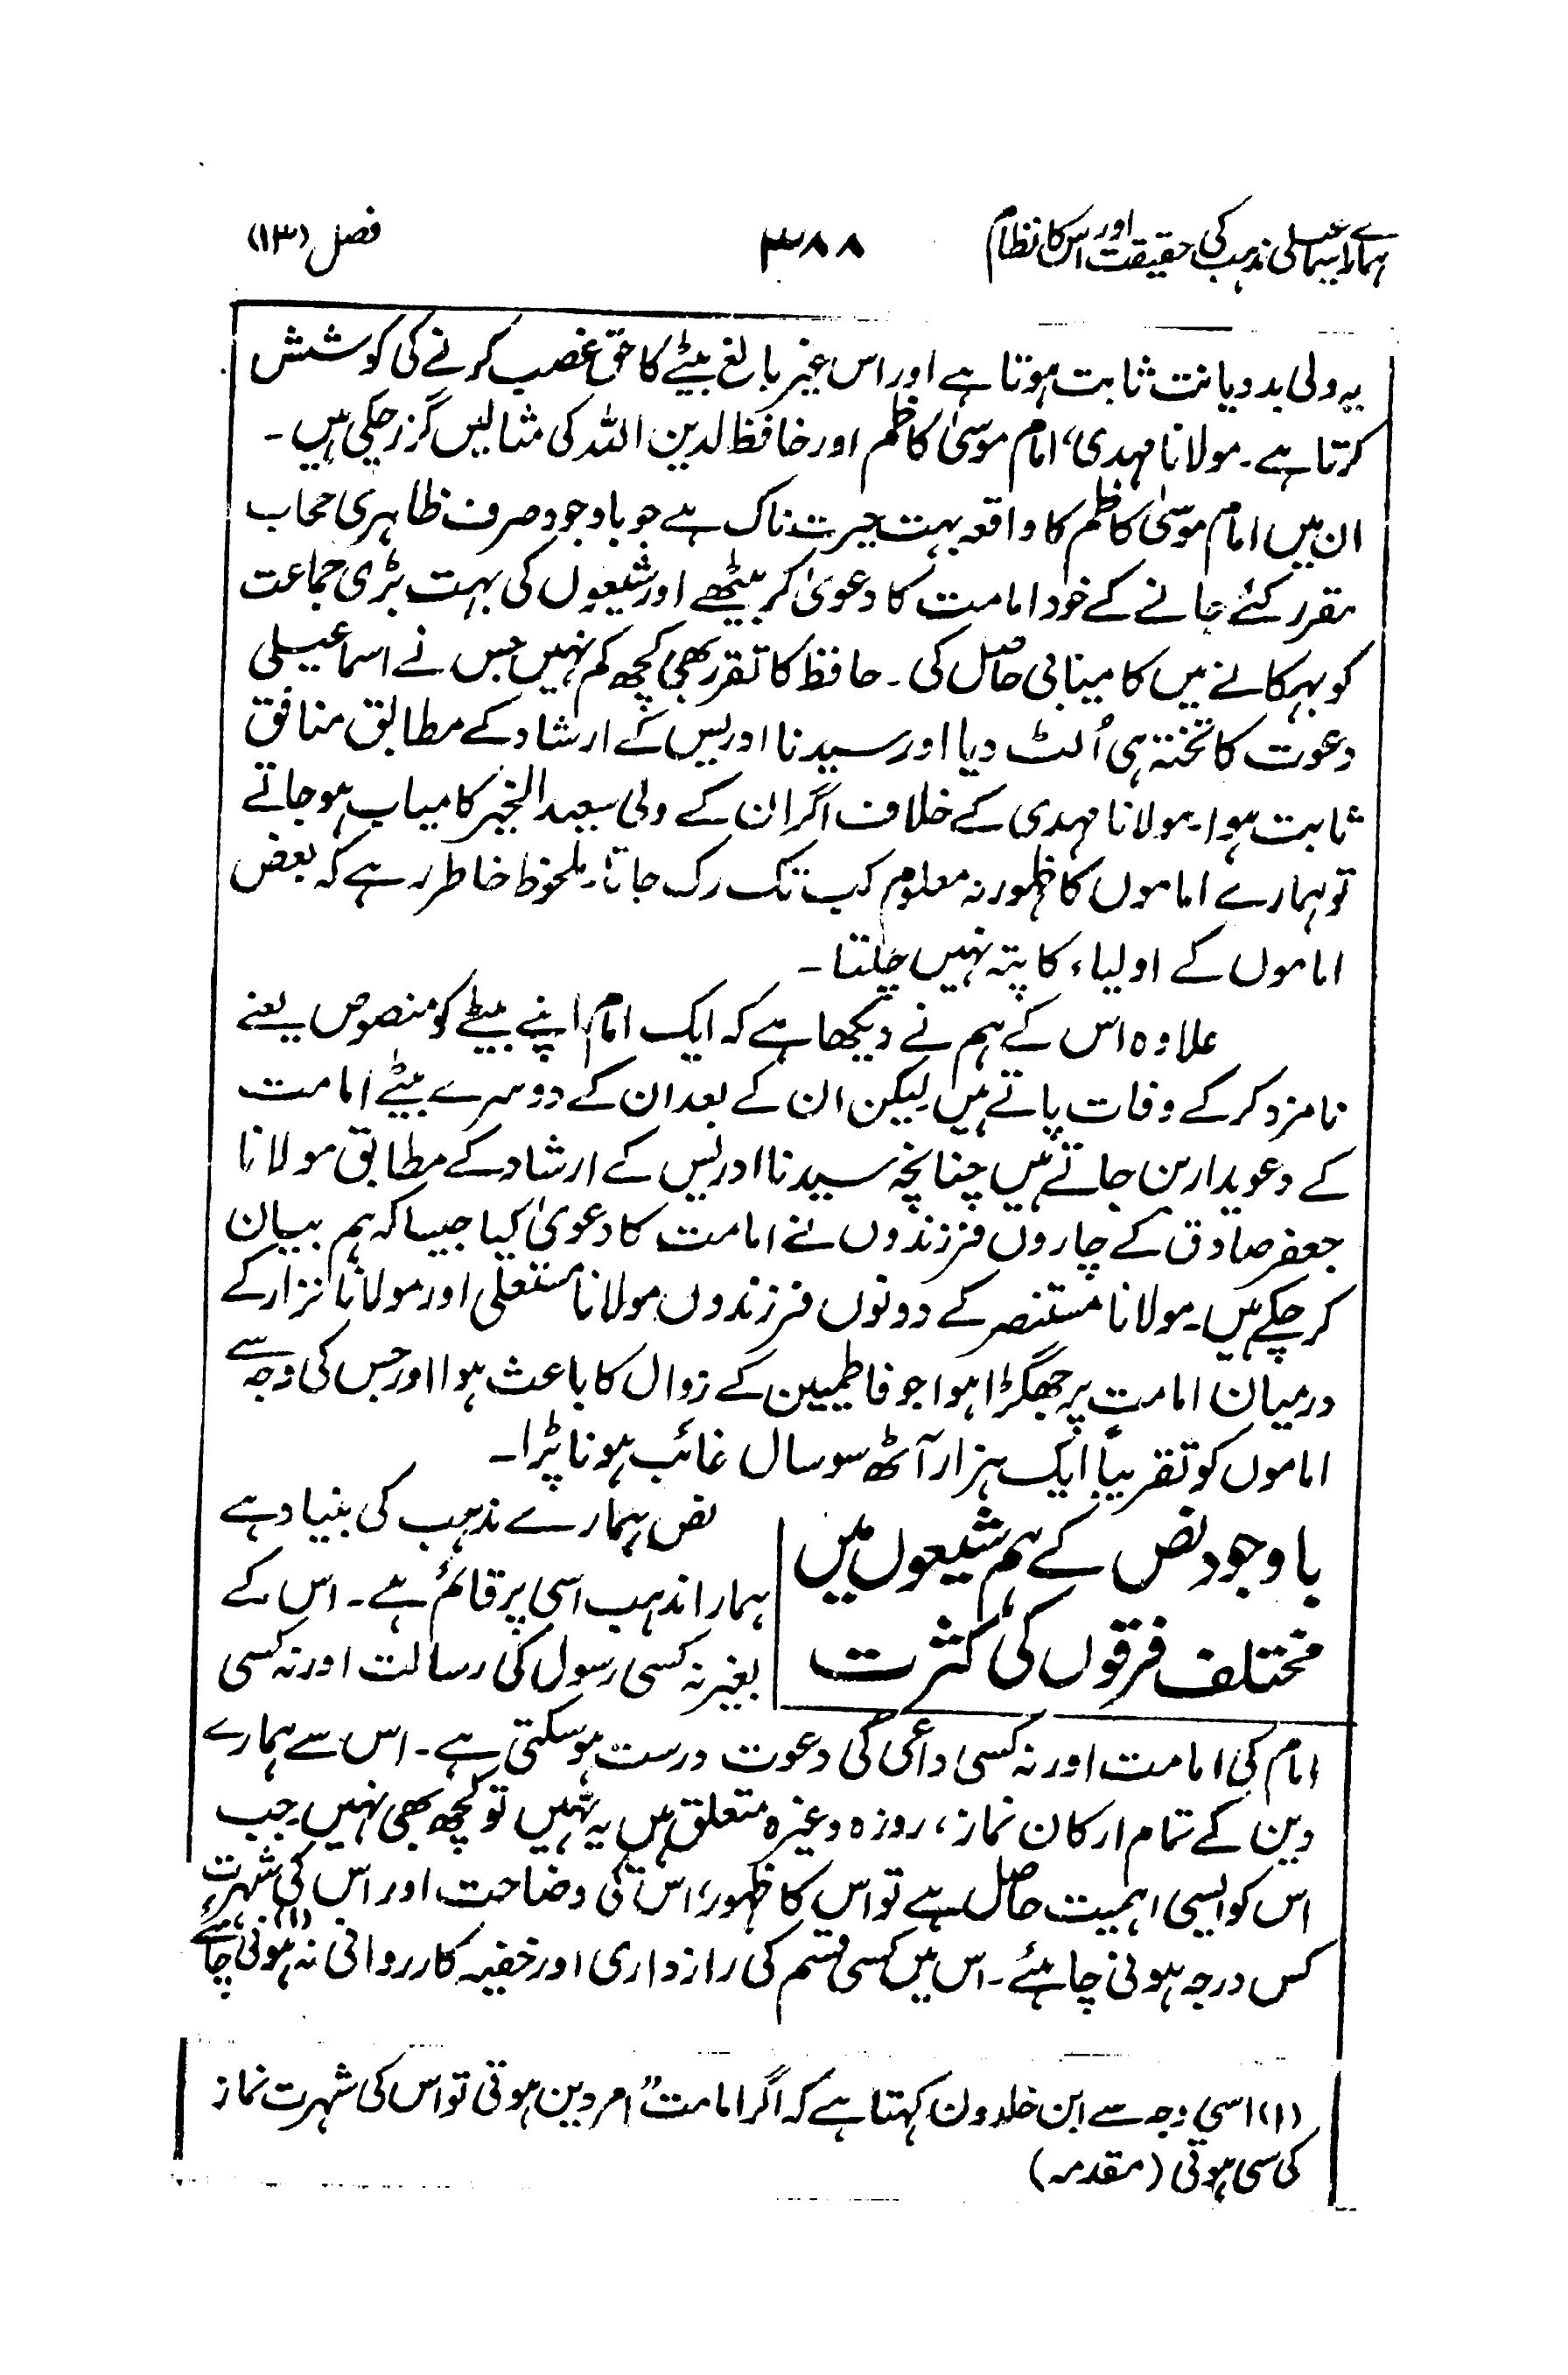 ہمارے اسماعیلی مذہب کی حقیقت اور اس کا نظام ۳۸۸ فصل (۱۳)
یہ ولی بددیانت ثابت ہوتا ہے اور اس غیر بالغ بیٹے کا حق غصب کرنے کی کوشش
کرتا ہے۔ مولانا مہدی، امام موسیٰ کاظم اور حافظ لدین اللہ کی مثالیں گزر چکی ہیں۔
ان میں امام موسیٰ کاظم کا واقعہ بہت حیرت ناک ہے جو باوجود صرف ظاہری حجاب
مقرر کئے جانے کے خود امامت کا دعویٰ کر بیٹھے اور شیعوں کی بہت بڑی جماعت
کو بہکانے میں کامیابی حاصل کی۔ حافظ کا تقرر بھی کچھ کم نہیں جس نے اسماعیلی
دعوت کا تختہ ہی اُلٹ دیا اور سیدنا ادریس کے ارشاد کے مطابق منافق
ثابت ہوا۔ مولانا مہدی کے خلاف اگر ان کے ولی سعید الخیر کامیاب ہو جاتے
تو ہمارے اماموں کا ظہور نہ معلوم کب تک رک جاتا۔ ملحوظ خاطر رہے کہ بعض
اماموں کے اولیاء کا پتہ نہیں چلتا۔
علاوہ اس کے ہم نے دیکھا ہے کہ ایک امام اپنے بیٹے کو منصوص یعنے
نامزد کر کے وفات پاتے ہیں لیکن ان کے بعد ان کے دوسرے بیٹے امامت
کے دعویدار بن جاتے ہیں چنانچہ سیدنا ادریس کے ارشاد کے مطابق مولانا
جعفر صادق کے چاروں فرزندوں نے امامت کا دعویٰ کیا جیسا کہ ہم بیان
کر چکے ہیں۔ مولانا مستنصر کے دونوں فرزندوں مولانا مستعلی اور مولانا نزار کے
درمیان امامت پر جھگڑا ہوا جو فاطمیین کے زوال کا باعث ہوا اور جس کی وجہ سے
اماموں کو تقریباً ایک ہزار آٹھ سو سال غائب ہونا پڑا۔
باوجود نص کے ہم شیعوں میں
مختلف فرقوں کی کثرت
نص ہمارے مذہب کی بنیاد ہے
ہمارا مذہب اسی پر قائم ہے۔ اس کے
بغیر نہ کسی رسول کی رسالت اور نہ کسی
امام کی امامت اور نہ کسی داعی کی دعوت درست ہو سکتی ہے۔ اس سے ہمارے
دین کے تمام ارکان نماز، روزہ وغیرہ متعلق ہیں یہ نہیں تو کچھ بھی نہیں۔ جب
اس کو ایسی اہمیت حاصل ہے تو اس کا ظہور، اس کی وضاحت اور اس کی شہرت
کس درجہ ہونی چاہئے۔ اس میں کسی قسم کی رازداری اور خفیہ کارروائی نہ ہونی چاہئے (۱)
(۱) اسی وجہ سے ابن خلدون کہتا ہے کہ اگر امامت" امر دین ہوتی تو اس کی شہرت نماز
کی سی ہوتی (مقدمہ)